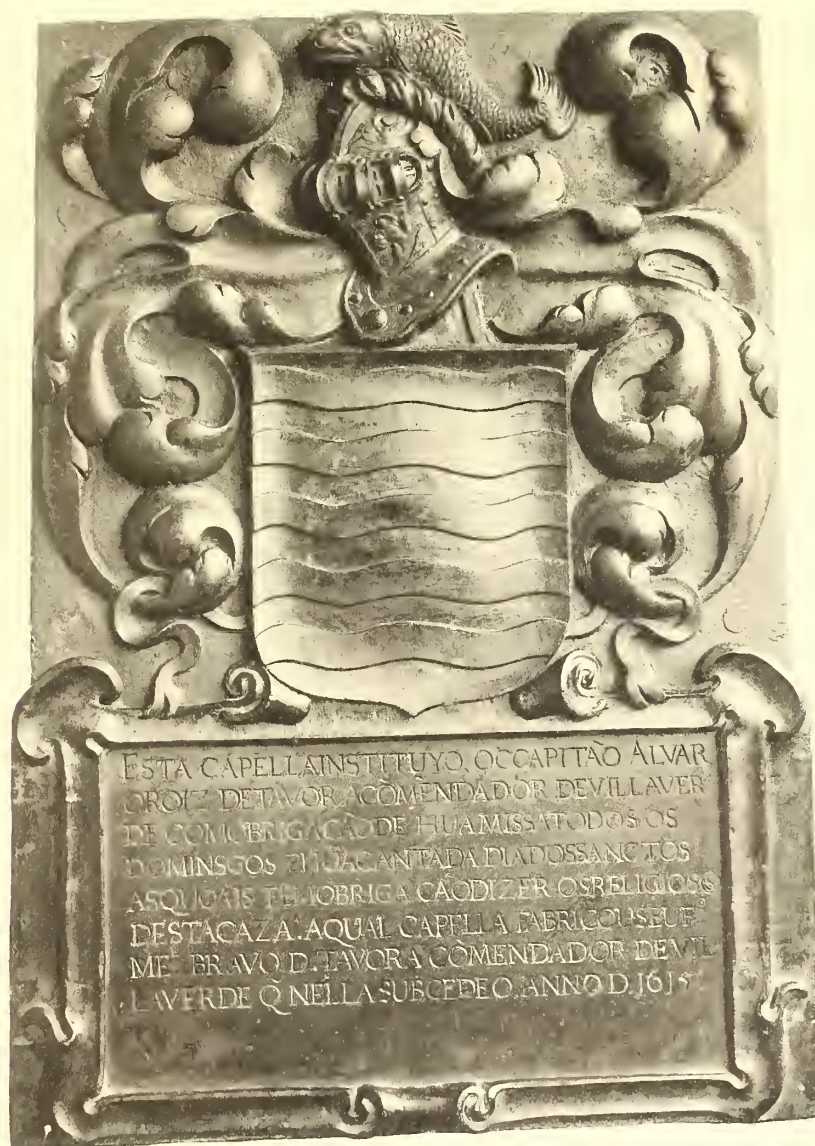 ESTA CAPELLA INSTITUYO, O CCAPITÃO ALVAR
OROIZ DETAVOR ACÕMENDADOR DEVILLAVER
DE COMOBRIGACÃO DE HUA MISSA TODOS OS
DOMINSGOS CANTADA DIA DOS SANCTOS
ASQUOAIS TEMOBRIGACÃO DIZER OS RELIGIOSOS
DESTA CAZA. AQUAL CAPELLA FABRICOU SEU Fº
MEL BRAVO D. TAVORA CÕMENDADOR DEVIL
LAVERDE Q̃ NELLA SUBCEDEO. ANNO D. 1615